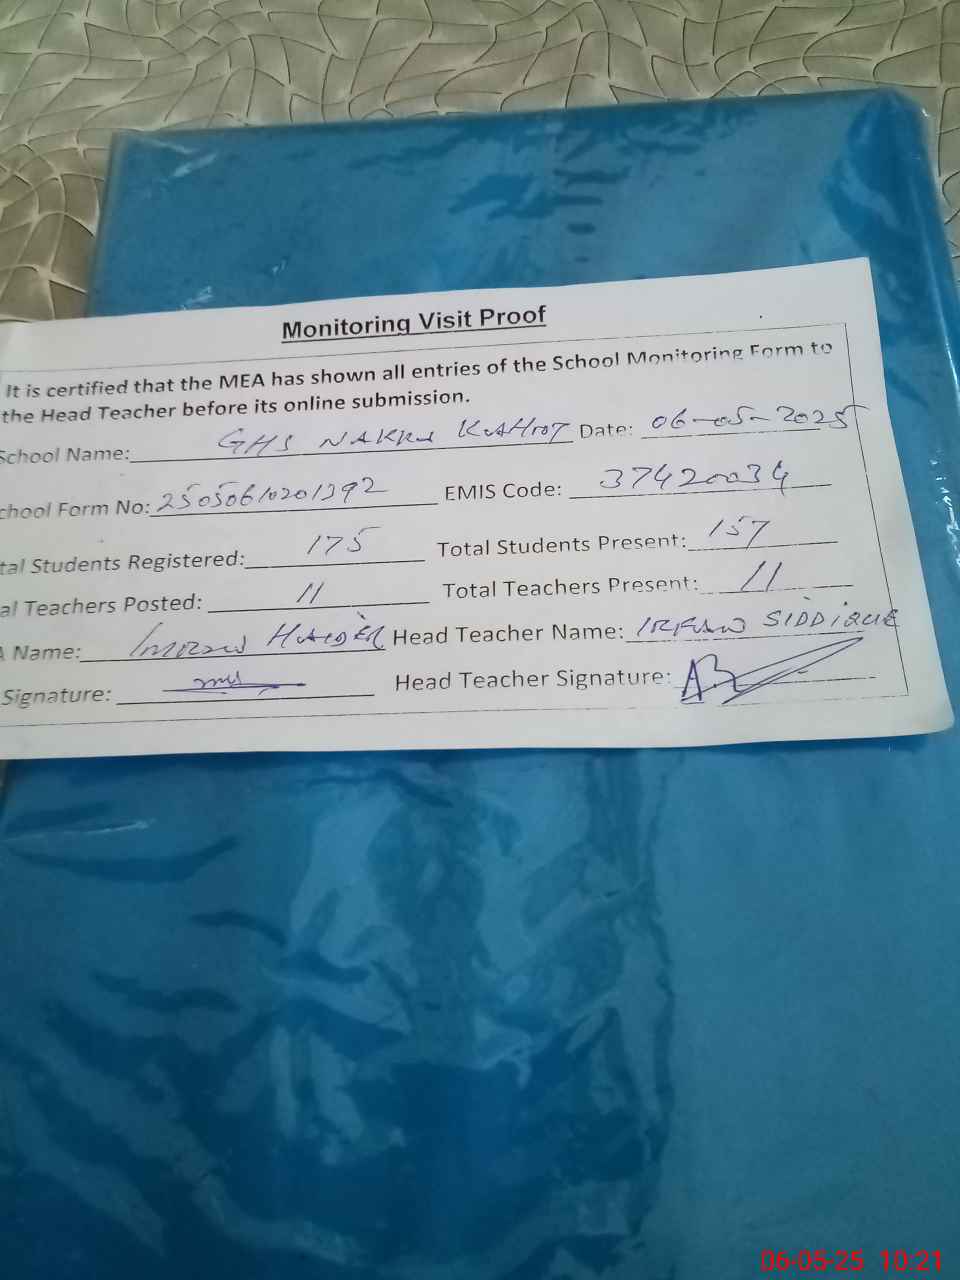 Monitoring Visit Proof
It is certified that the MEA has shown all entries of the School Monitoring Form to
the Head Teacher before its online submission.
School Name: GHS NAKRA KAHOOT Date: 06-05-2025
chool Form No: 25050610201392 EMIS Code: 37420034
tal Students Registered: 175 Total Students Present: 157
al Teachers Posted: 11 Total Teachers Present: 11
A Name: IMRAN HAIDER Head Teacher Name: IRFAN SIDDIQUE
Signature: Head Teacher Signature:
06-05-25 10:21